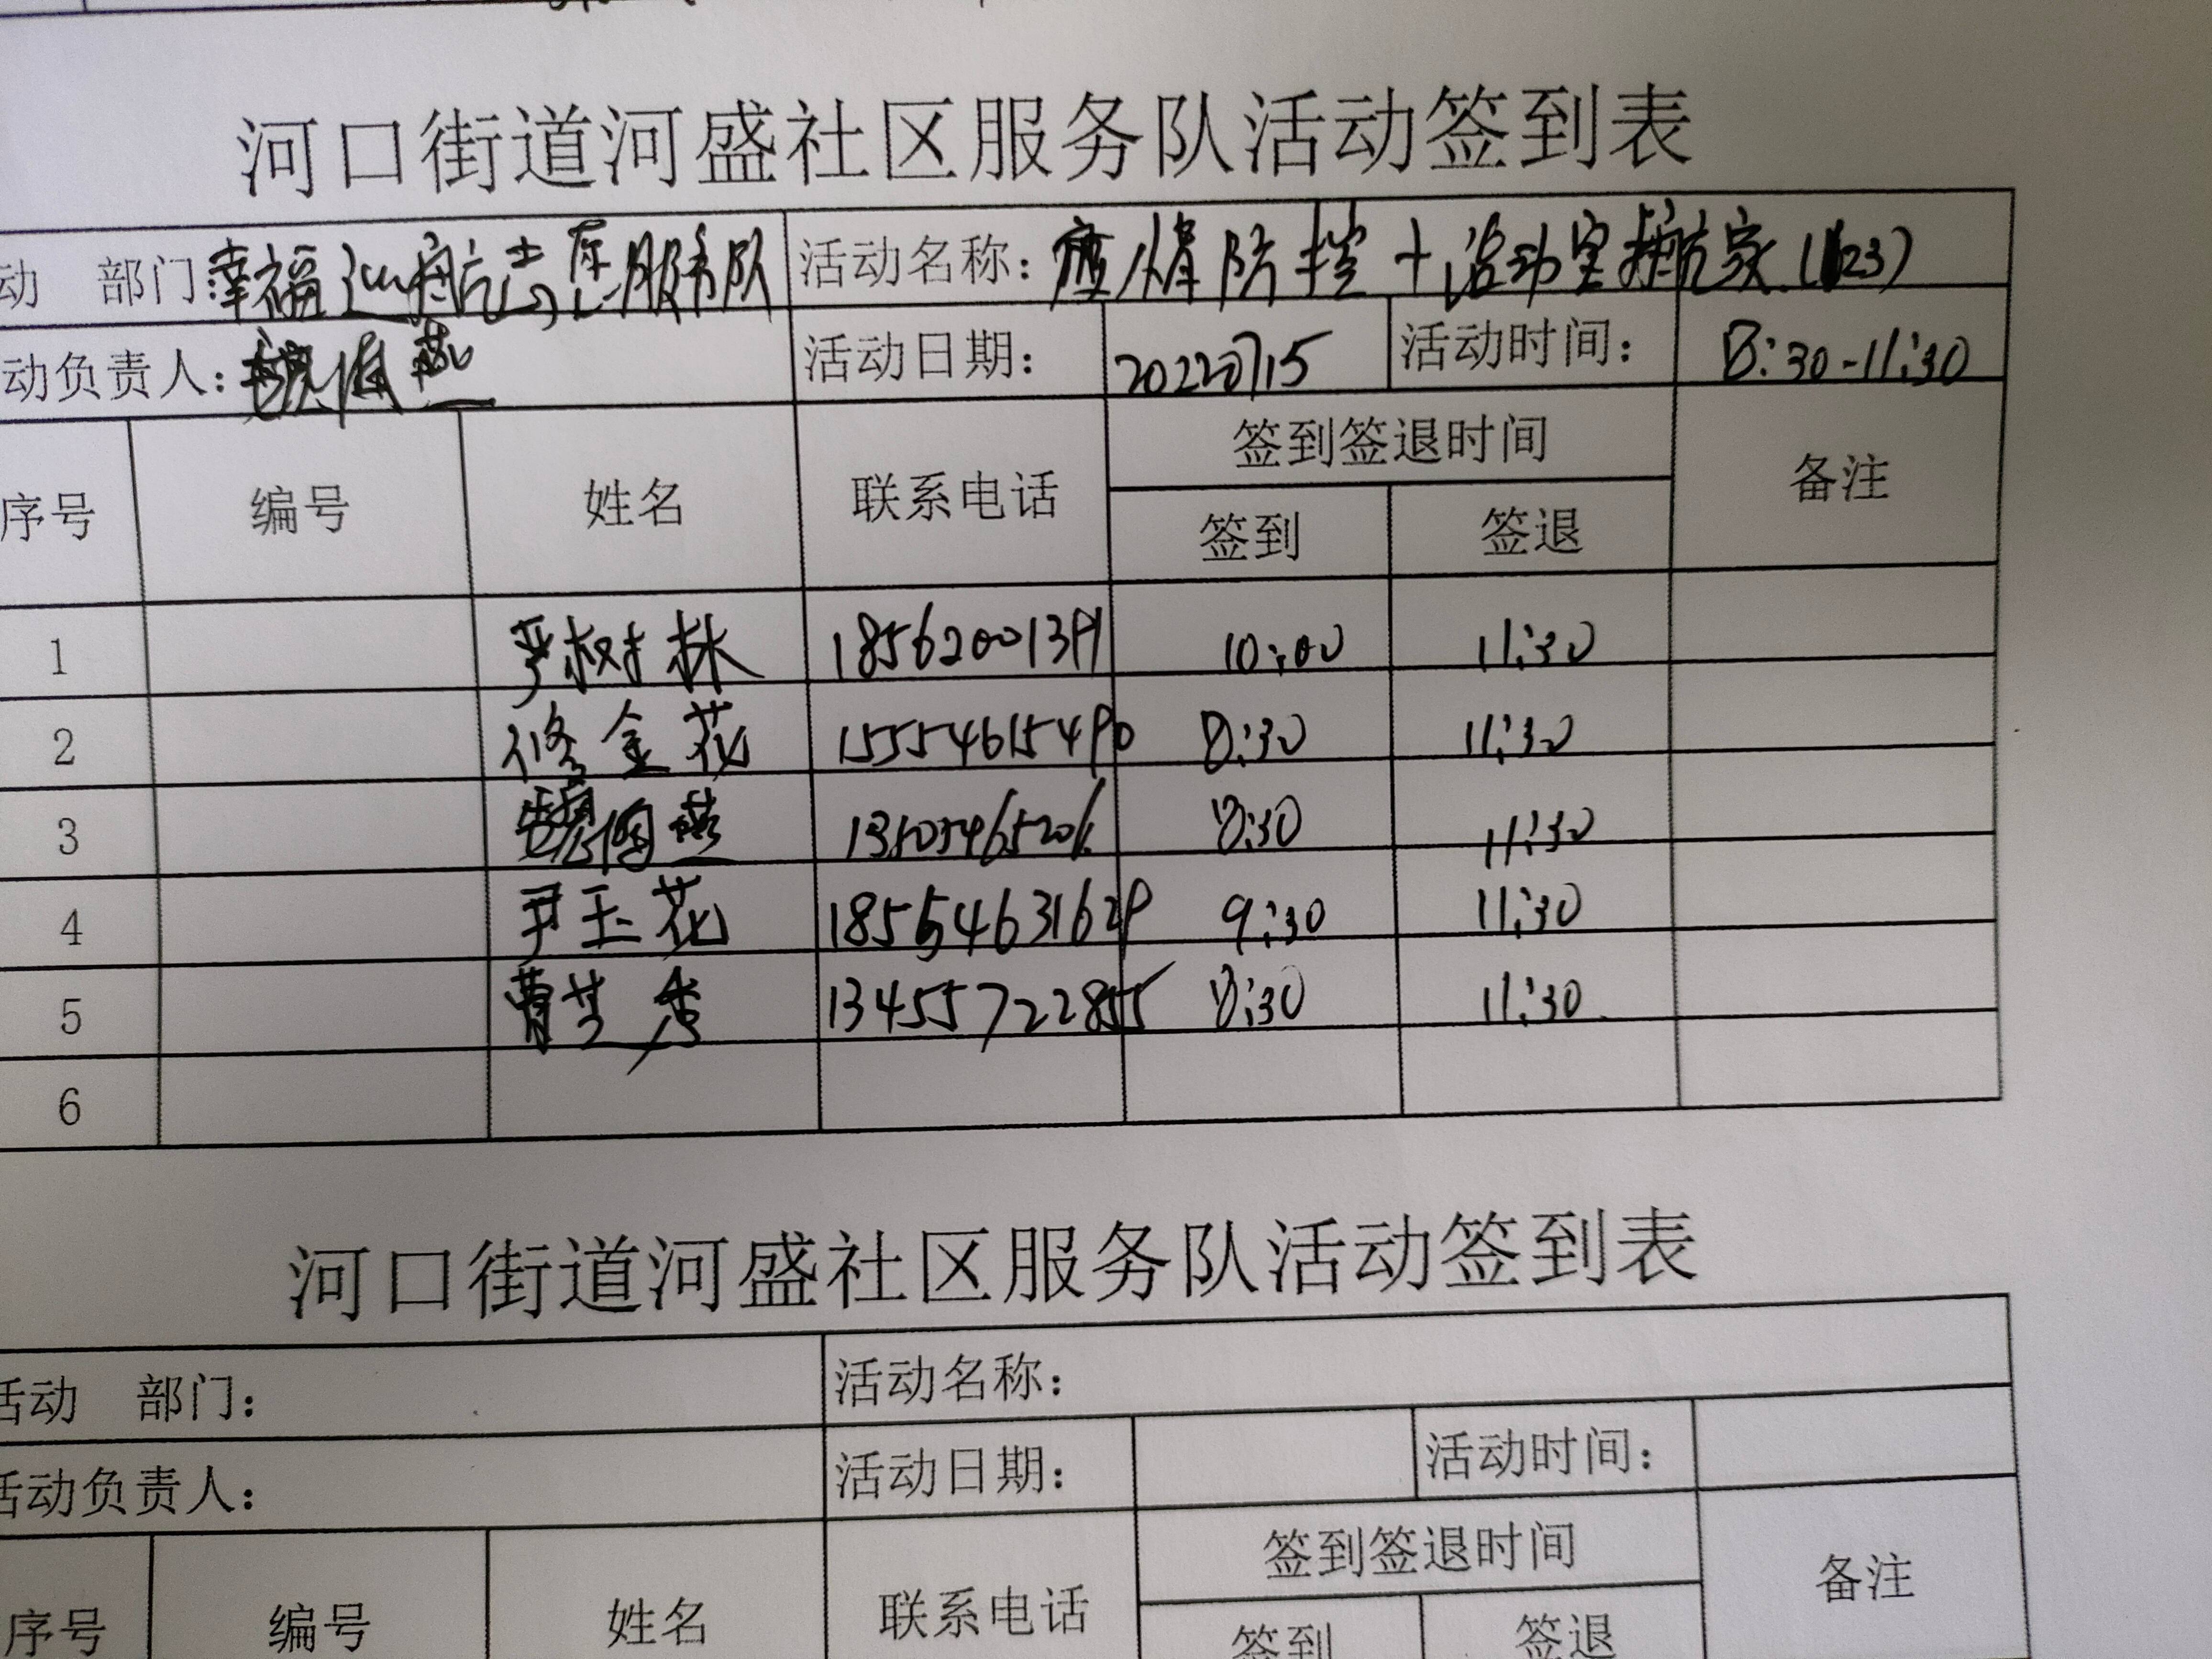 河口街道河盛社区服务队活动签到表
动 部门 幸福巡航志愿服务队 活动名称： 疫情防控+活动室 (23)
动负责人： 魏 燕 活动日期： 20220715 活动时间： 8:30-11:30
序号 编号 姓名 联系电话 签到签退时间 备注
签到 签退
1 严树林 18562001391 10:00 11:30
2 修金花 15554615490 8:30 11:30
3 魏 燕 8:30 11:30
4 尹玉花 18554631629 9:30 11:30
5 曹芝秀 13455722855 8:30 11:30
6
河口街道河盛社区服务队活动签到表
活动 部门： 活动名称：
活动负责人： 活动日期： 活动时间：
序号 编号 姓名 联系电话 签到签退时间 备注
签到 签退